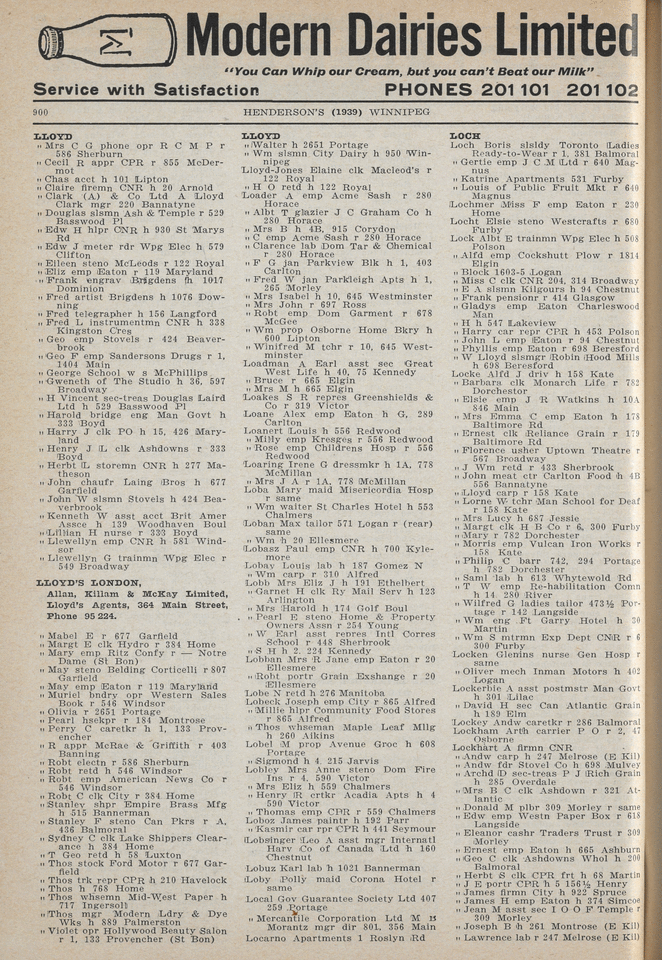 M
Modern Dairies Limited
"You Can Whip our Cream, but you can't Beat our Milk"
Service with Satisfaction PHONES 201 101 201 102
900 HENDERSON'S (1939) WINNIPEG
LLOYD
" Mrs C G phone opr R C M P r
586 Sherburn
" Cecil R appr CPR r 855 McDer-
mot
" Chas acct h 101 Lipton
" Claire firemn CNR h 20 Arnold
" Clark (A) & Co Ltd A Lloyd
Clark mgr 220 Bannatyne
" Douglas slsmn Ash & Temple r 529
Basswood Pl
" Edw H hlpr CNR h 930 St Marys
Rd
" Edw J meter rdr Wpg Elec h 579
Clifton
" Eileen steno McLeods r 122 Royal
" Eliz emp Eaton r 119 Maryland
" Frank engrav Brigdens h 1017
Dominion
" Fred artist Brigdens h 1076 Dow-
ning
" Fred telegrapher h 156 Langford
" Fred L instrumentmn CNR h 338
Kingston Cres
" Geo emp Stovels r 424 Beaver-
brook
" Geo F emp Sandersons Drugs r 1,
1404 Main
" George School w s McPhillips
" Gweneth of The Studio h 36, 597
Broadway
" H Vincent sec-treas Douglas Laird
Ltd h 529 Basswood Pl
" Harold bridge eng Man Govt h
333 Boyd
" Harry J clk PO h 15, 426 Mary-
land
" Henry J L clk Ashdowns r 333
Boyd
" Herbt L storemn CNR h 277 Ma-
theson
" John chaufr Laing Bros h 677
Garfield
" John W slsmn Stovels h 424 Bea-
verbrook
" Kenneth W asst acct Brit Amer
Assce h 139 Woodhaven Boul
" Lillian H nurse r 333 Boyd
" Llewellyn emp CNR h 581 Wind-
sor
" Llewellyn G trainmn Wpg Elec r
549 Broadway
LLOYD'S LONDON,
Allan, Killam & McKay Limited,
Lloyd's Agents, 364 Main Street,
Phone 95 224.
" Mabel E r 677 Garfield
" Margt E clk Hydro r 384 Home
" Mary emp Ritz Comfy r — Notre
Dame (St Bon)
" May steno Belding Corticelli r 807
Garfield
" May emp Eaton r 119 Maryland
" Muriel bndry opr Western Sales
Book r 546 Windsor
" Olivia r 2651 Portage
" Pearl hsekpr r 184 Montrose
" Perry C caretkr h 1, 133 Prov-
encher
" R appr McRae & Griffith r 403
Banning
" Robt electn r 586 Sherburn
" Robt retd h 546 Windsor
" Robt emp American News Co r
546 Windsor
" Robt C clk City r 384 Home
" Stanley shpr Empire Brass Mfg
h 515 Bannerman
" Stanley F steno Can Pkrs r A,
436 Balmoral
" Sydney C clk Lake Shippers Clear-
ance h 384 Home
" T Geo retd h 58 Luxton
" Thos stock Ford Motor r 677 Gar-
field
" Thos trk repr CPR h 210 Havelock
" Thos h 768 Home
" Thos whsemn Mid-West Paper h
717 Ingersoll
" Thos mgr Modern Ldry & Dye
Wks h 889 Palmerston
" Violet opr Hollywood Beauty Salon
r 1, 133 Provencher (St Bon)
LLOYD
" Walter h 2651 Portage
" Wm slsmn City Dairy h 950 Win-
nipeg
Lloyd-Jones Elaine clk Macleod's r
122 Royal
" H O retd h 122 Royal
Loader A emp Acme Sash r 280
Horace
" Albt T glazier J C Graham Co h
280 Horace
" Mrs B h 4B, 915 Corydon
" C emp Acme Sash r 280 Horace
" Clarence lab Dom Tar & Chemical
r 280 Horace
" F G jan Parkview Blk h 1, 403
Carlton
" Fred W jan Parkleigh Apts h 1,
265 Morley
" Mrs Isabel h 10, 645 Westminster
" Mrs John r 697 Ross
" Robt emp Dom Garment r 678
McGee
" Wm prop Osborne Home Bkry h
600 Lipton
" Winifred M tchr r 10, 645 West-
minster
Loadman A Earl asst sec Great
West Life h 40, 75 Kennedy
" Bruce r 665 Elgin
" Mrs M h 665 Elgin
Loakes S R repres Greenshields &
Co r 319 Victor
Loane Alex emp Eaton h G, 289
Carlton
Loanert Louis h 556 Redwood
" Milly emp Kresges r 556 Redwood
" Rose emp Childrens Hosp r 556
Redwood
Loaring Irene G dressmkr h 1A, 778
McMillan
" Mrs J A r 1A, 778 McMillan
Loba Mary maid Misericordia Hosp
r same
" Wm waiter St Charles Hotel h 553
Chalmers
Loban Max tailor 571 Logan r (rear)
same
" Wm h 20 Ellesmere
Lobasz Paul emp CNR h 700 Kyle-
more
Lobay Louis lab h 187 Gomez N
" Wm carp r 310 Alfred
Lobb Mrs Eliz J h 191 Ethelbert
" Garnet H clk Ry Mail Serv h 123
Arlington
" Mrs Harold h 174 Golf Boul
" Pearl E steno Home & Property
Owners Assn r 254 Young
" W Earl asst repres Intl Corres
School r 448 Sherbrook
" S H h 2, 224 Kennedy
Lobban Mrs R Jane emp Eaton r 20
Ellesmere
" Robt portr Grain Exchange r 20
Ellesmere
Lobe N retd h 276 Manitoba
Lobeck Joseph emp City r 865 Alfred
" Millie hlpr Community Food Stores
r 865 Alfred
" Thos whseman Maple Leaf Mllg
h 260 Aikins
Lobel M prop Avenue Groc h 608
Portage
" Sigmond h 4, 215 Jarvis
Lobley Mrs Anne steno Dom Fire
Ins r 4, 590 Victor
" Mrs Eliz h 559 Chalmers
" Henry R crtkr Acadia Apts h 4
590 Victor
" Thomas emp CPR r 559 Chalmers
Loboz James paintr h 192 Parr
" Kasmir car rpr CPR h 441 Seymour
Lobsinger Leo A asst mgr Internatl
Harv Co of Canada Ltd h 160
Chestnut
Lobuz Karl lab h 1021 Bannerman
Loby Polly maid Corona Hotel r
same
Local Gov Guarantee Society Ltd 407
259 Portage
" Mercantile Corporation Ltd M B
Morantz mgr dir 801, 356 Main
Locarno Apartments 1 Roslyn Rd
LOCH
Loch Boris slsldy Toronto Ladies
Ready-to-Wear r 1, 381 Balmoral
" Gertie emp J C M Ltd r 640 Mag-
nus
" Katrine Apartments 531 Furby
" Louis of Public Fruit Mkt r 640
Magnus
Lochmer Miss F emp Eaton r 230
Home
Locht Elsie steno Westcrafts r 680
Furby
Lock Albt E trainmn Wpg Elec h 508
Polson
" Alfd emp Cockshutt Plow r 1814
Elgin
" Block 1603-5 Logan
" Miss C clk CNR 204, 314 Broadway
" E A slsmn Kilgours h 94 Chestnut
" Frank pensionr r 414 Glasgow
" Gladys emp Eaton Charleswood
Man
" H h 547 Lakeview
" Harry car repr CPR h 453 Polson
" John L emp Eaton r 94 Chestnut
" Phyllis emp Eaton r 698 Beresford
" W Lloyd slsmgr Robin Hood Mills
h 698 Beresford
Locke Alfd J driv h 158 Kate
" Barbara clk Monarch Life r 782
Dorchester
" Elsie emp J R Watkins h 10A
846 Main
" Mrs Emma C emp Eaton h 178
Baltimore Rd
" Ernest clk Reliance Grain r 179
Baltimore Rd
" Florence usher Uptown Theatre r
567 Broadway
" J Wm retd r 433 Sherbrook
" John meat ctr Carlton Food h 4B
556 Bannatyne
" Lloyd carp r 158 Kate
" Lorne W tchr Man School for Deaf
r 158 Kate
" Mrs Lucy h 687 Jessie
" Margt clk H B Co r 6, 300 Furby
" Mary r 782 Dorchester
" Morris emp Vulcan Iron Works r
158 Kate
" Philip C barr 742, 294 Portage
h 782 Dorchester
" Saml lab h 613 Whytewold Rd
" T W emp Re-habilitation Comn
h 14, 280 River
" Wilfred G ladies tailor 473½ Por-
tage r 142 Langside
" Wm eng Ft Garry Hotel h 30
Martin
" Wm S mtrmn Exp Dept CNR r 6
300 Furby
Locken Glenins nurse Gen Hosp r
same
" Oliver mech Inman Motors h 402
Logan
Lockerbie A asst postmstr Man Govt
h 301 Lilac
" David H sec Can Atlantic Grain
h 189 Elm
Lockey Andw caretkr r 286 Balmoral
Lockham Arth carrier P O r 2, 47
Osborne
Lockhart A firmn CNR
" Andw carp h 247 Melrose (E Kil)
" Andw fdr Stovel Co h 698 Mulvey
" Archd D sec-treas P J Rich Grain
h 285 Overdale
" Mrs B C clk Ashdown r 321 At-
lantic
" Donald M plbr 309 Morley r same
" Edw emp Westn Paper Box r 618
Langside
" Eleanor cashr Traders Trust r 309
Morley
" Ernest emp Eaton h 665 Ashburn
" Geo C clk Ashdowns Whol h 200
Balmoral
" Herbt S clk CPR frt h 68 Martin
" J E portr CPR h 5 156½ Henry
" James firmn City h 922 Spruce
" James H emp Eaton h 374 Simcoe
" Jean M asst sec I O O F Temple r
309 Morley
" Joseph B h 261 Montrose (E Kil)
" Lawrence lab r 247 Melrose (E Kil)